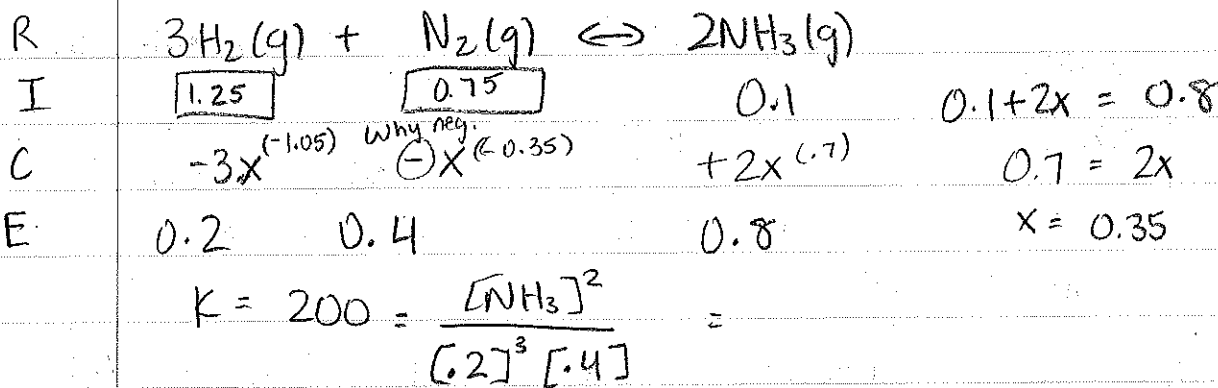 R 3H₂(g) + N₂(g) ⟷ 2NH₃(g)
I 1.25 0.75 0.1 0.1+2x = 0.8
Why neg.
C -3x (-1.05) -x (-0.35) +2x (.7) 0.7 = 2x
E 0.2 0.4 0.8 x = 0.35
K = 200 = [NH₃]² / [.2]³ [.4] =